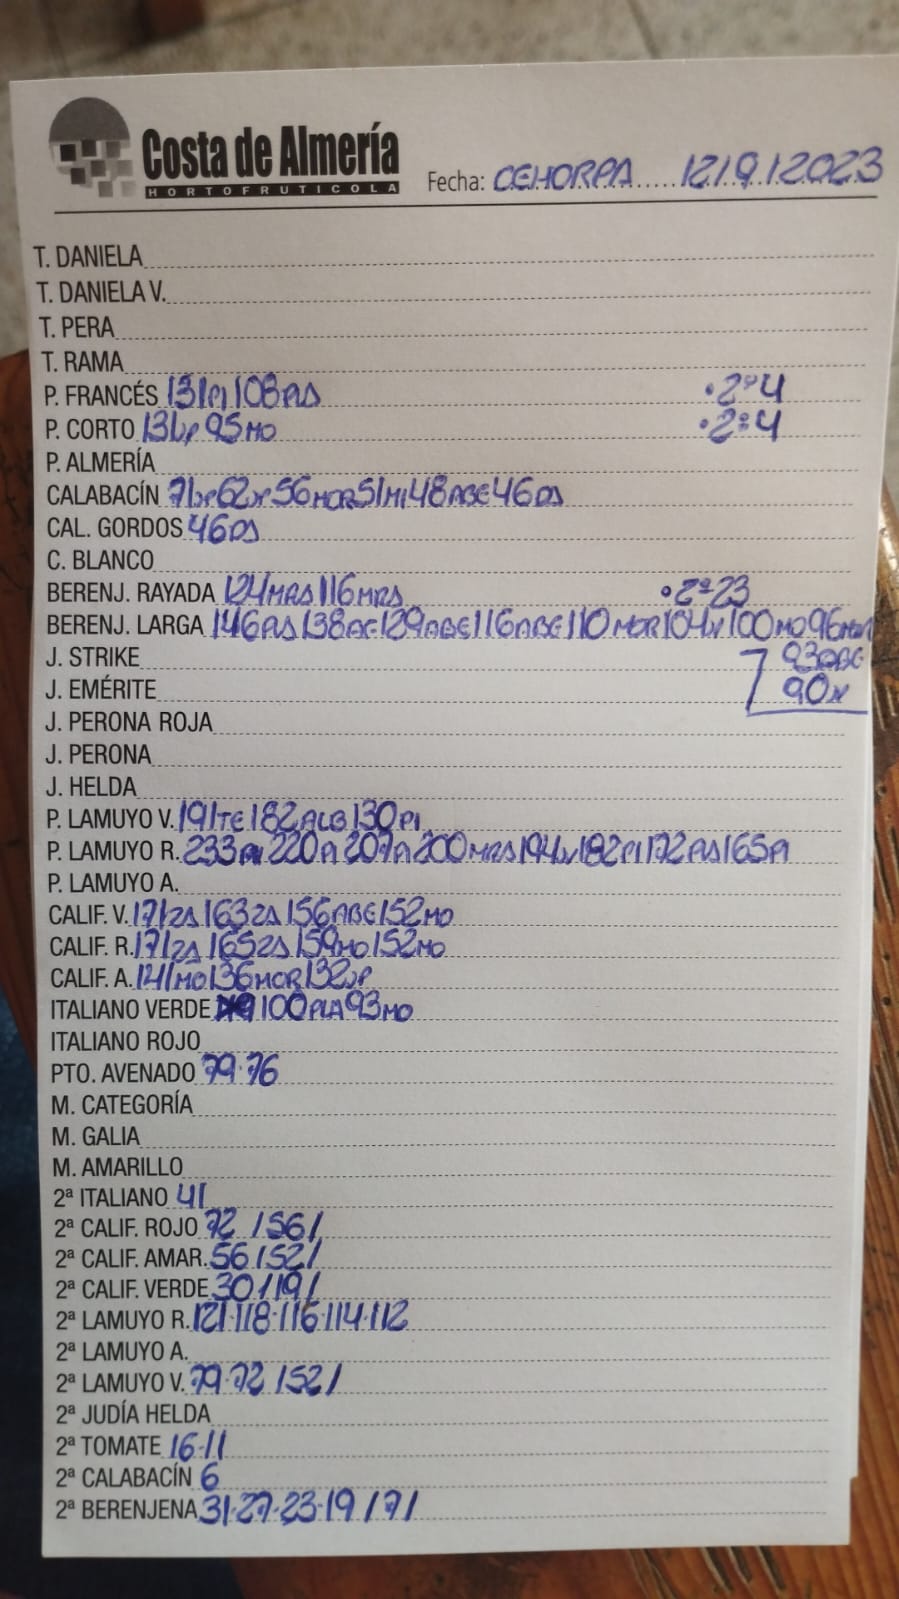 Costa de Almería
HORTOFRUTICOLA
Fecha: CEHORPA 12/9/2023
T. DANIELA
T. DANIELA V.
T. PERA
T. RAMA
P. FRANCÉS 131PI 108PLS •2ª4
P. CORTO 131JP 95MO •2ª4
P. ALMERÍA
CALABACÍN 71JP 62JP 56MOR 51MI 48ABE 46DS
CAL. GORDOS 46DS
C. BLANCO
BERENJ. RAYADA 124MRS 116MRS •2ª23
BERENJ. LARGA 146PLS 138AE 129ABE 116ABE 110MOR 104 100MO 96MOR
J. STRIKE 93ABE
J. EMÉRITE 90
J. PERONA ROJA
J. PERONA
J. HELDA
P. LAMUYO V. 191TE 182ALB 130PI
P. LAMUYO R. 233PI 220PI 207PI 200MRS 194 182PI 172PLS 165PI
P. LAMUYO A.
CALIF. V. 171ZA 163ZA 156ABE 152MO
CALIF. R. 171ZA 165ZA 159MO 152MO
CALIF. A. 141MO 136MOR 132JP
ITALIANO VERDE 100PLA 93MO
ITALIANO ROJO
PTO. AVENADO 79·76
M. CATEGORÍA
M. GALIA
M. AMARILLO
2ª ITALIANO 41
2ª CALIF. ROJO 72 /56/
2ª CALIF. AMAR. 56 /52/
2ª CALIF. VERDE 30 /19/
2ª LAMUYO R. 121·118·116·114·112
2ª LAMUYO A.
2ª LAMUYO V. 79·72 /52/
2ª JUDÍA HELDA
2ª TOMATE 16·11
2ª CALABACÍN 6
2ª BERENJENA 31·27·23·19 /7/